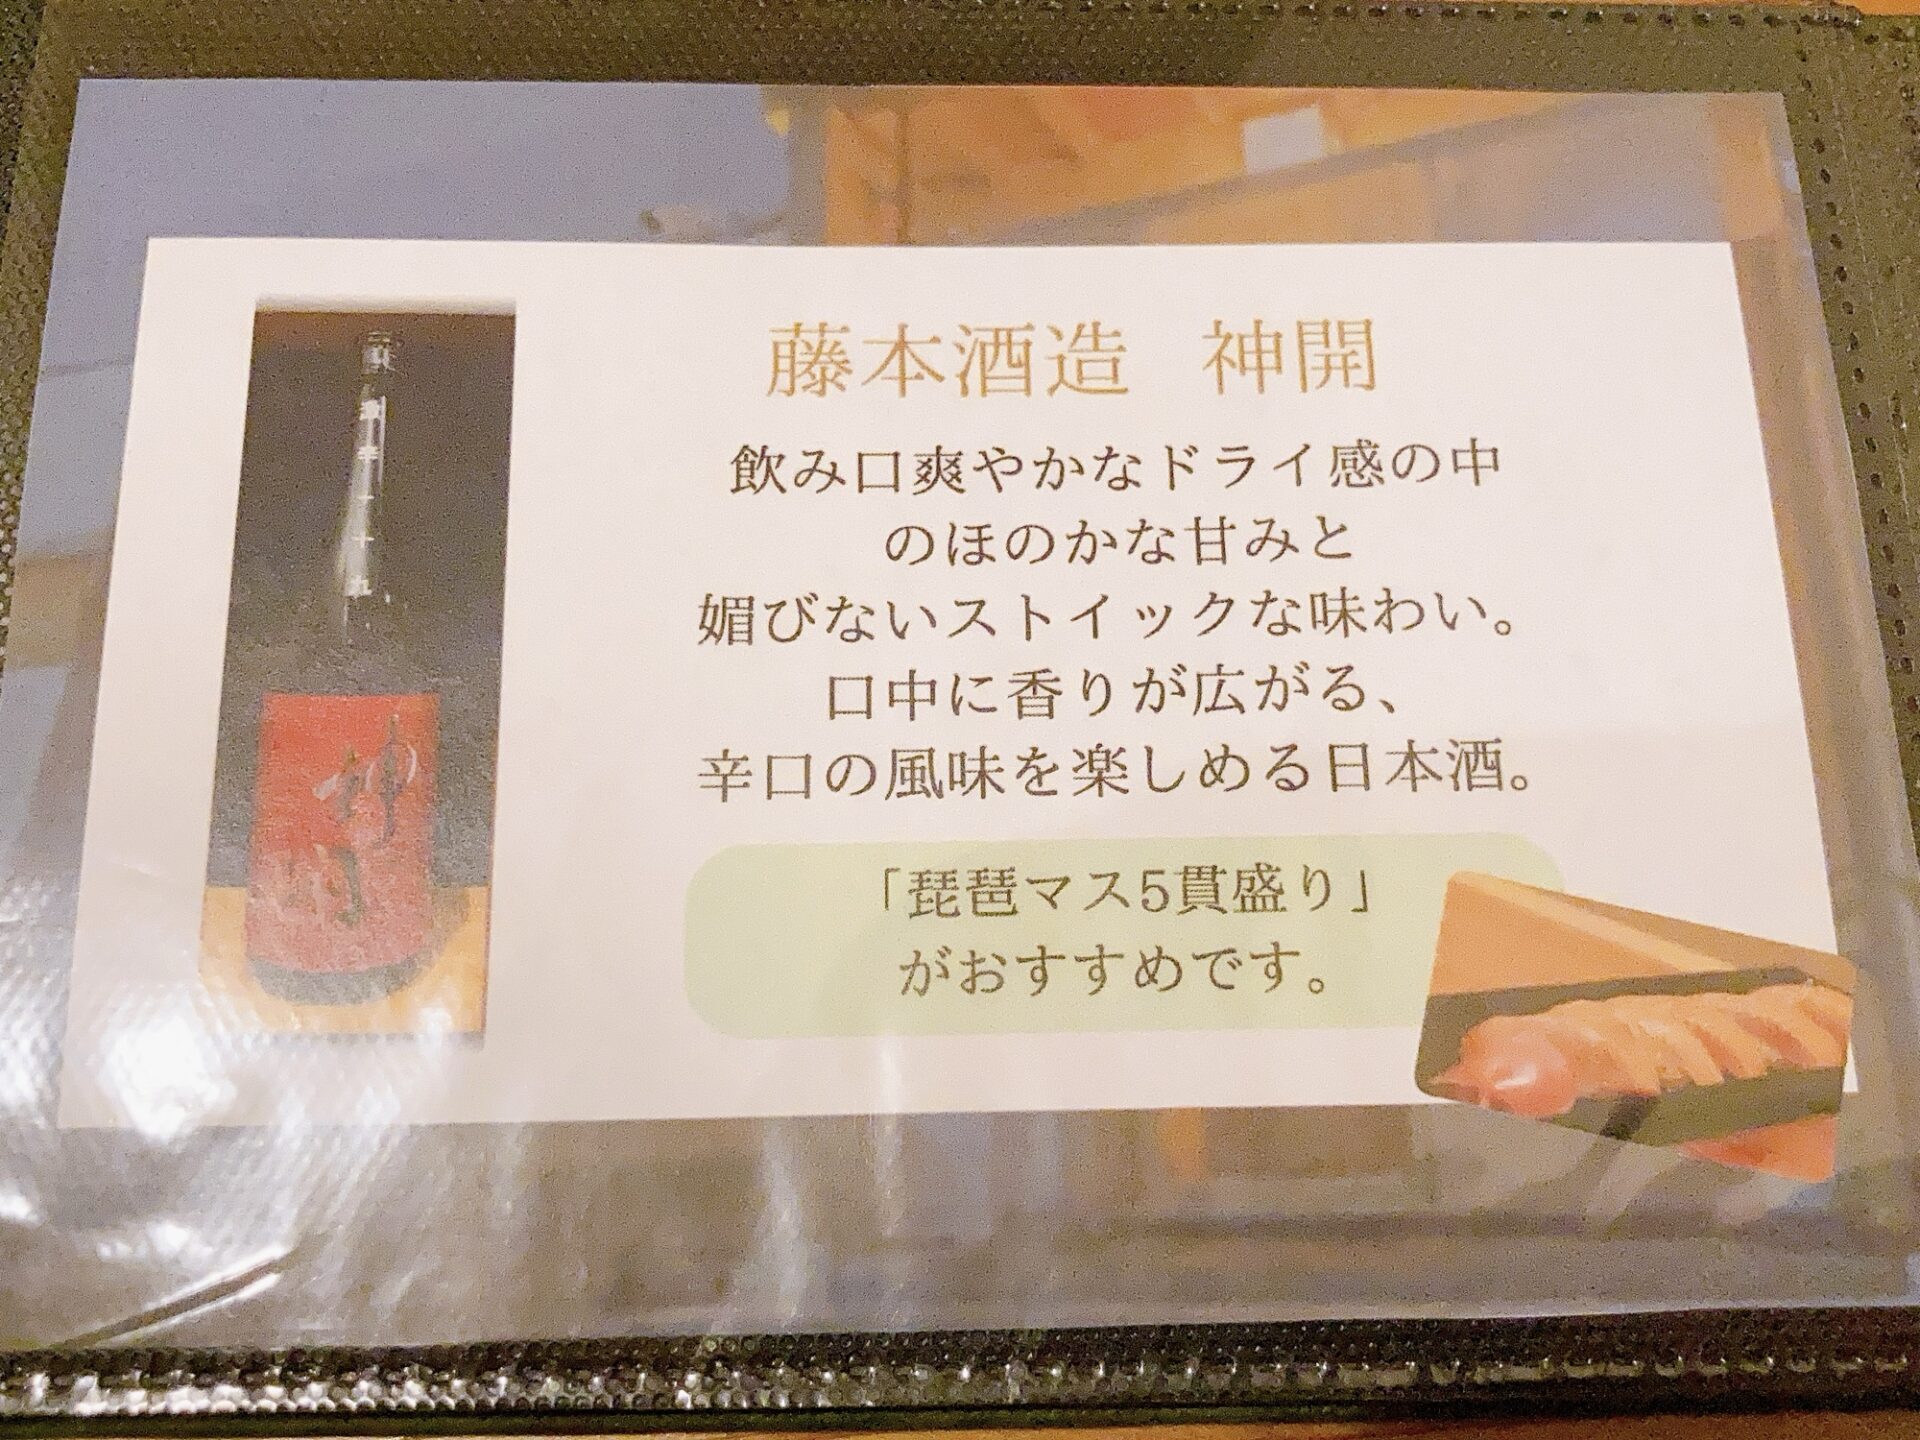 藤本酒造 神開
飲み口爽やかなドライ感の中
のほのかな甘みと
媚びないストイックな味わい。
口中に香りが広がる、
辛口の風味を楽しめる日本酒。
「琵琶マス5貫盛り」
がおすすめです。
神開